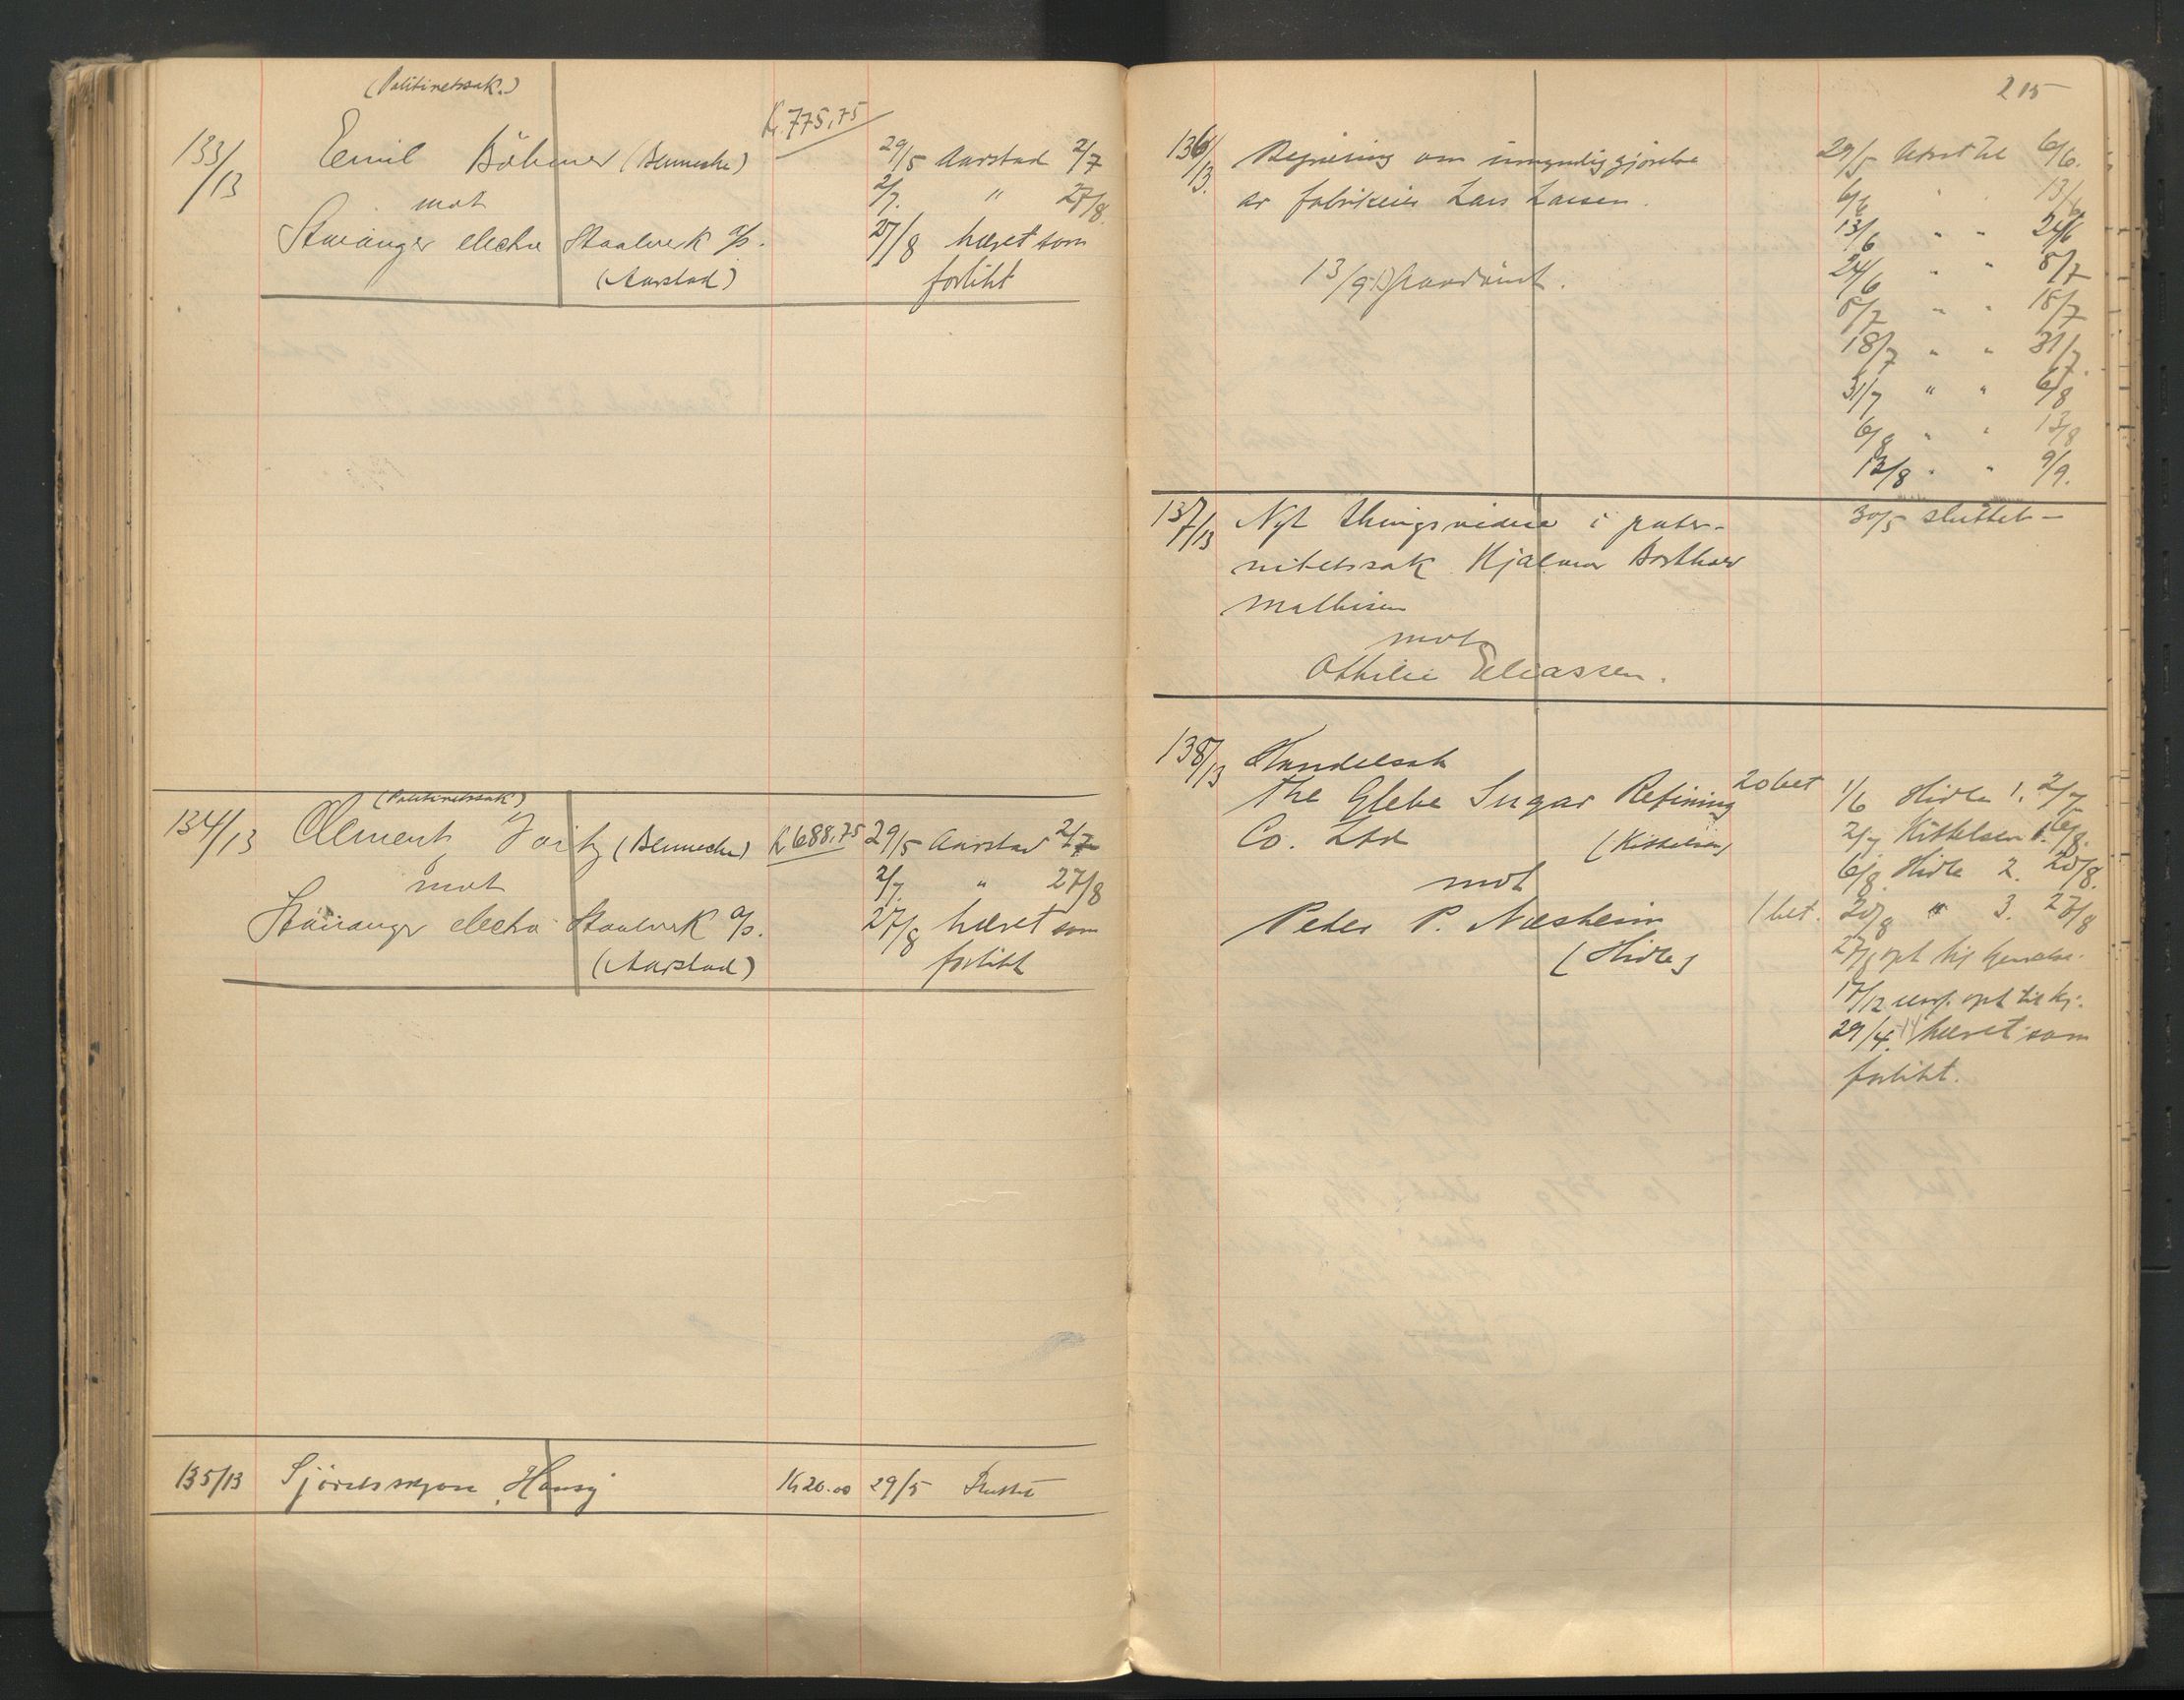 (Politiretssak.)
133/13 Emil Böhmer (Bennecke) K. 775,75 29/5 Aarstad 2/7
mot 2/7. " 27/8.
Stavanger electro Staalverk A/S. 27/8 hævet som
(Aarstad) forlikt
(Politiretssak)
134/13 Clement (Bennecke) K 688.75 29/5 Aarstad 2/7
mot 2/7. " 27/8
Stavanger electro Staalverk A/S. 27/8 hævet som
(Aarstad) forlikt
135/13 29/5 Sluttet
215
136/13. Begjæring om umyndiggjørelse 29/5 Utsat til 6/6.
av fabrikeier Lars Larsen. 6/6 " 13/6
13/6 " " 24/6
13/9 24/6 " " 8/7
8/7 " " 18/7
18/7 " " 31/7.
31/7 " " 6/8
6/8 " " 13/8
13/8 " " 9/9.
137/13 Nyt thingsvidne i pater- 30/5 sluttet -
nitetssak Hjalmar
Mathisen
mot
Othilie Eliassen.
138/13 Handelssak
The Glebe Sugar Refining 20 bet 1/6 Hidle 1. 2/7
Co. Ltd (Kittelsen) 2/7 Kittelsen 1. 6/8.
mot 6/8. Hidle 2. 20/8.
Peder P. Næsheim 1 bet. 20/8 " 3. 27/8
(Hidle) 27/8 opt til kjendelse.
17/12 opt til kj.
29/4. 14 hævet som
forlikt.